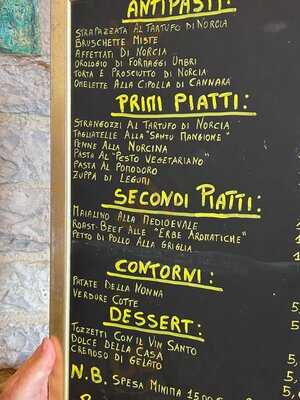 ANTIPASTI:
STRAPAZZATA AL TARTUFO DI NORCIA
BRUSCHETTE MISTE
AFFETTATI DI NORCIA
OROLOGIO DI FORMAGGI UMBRI
TORTA E PROSCIUTTO DI NORCIA
OMELETTE ALLA CIPOLLA DI CANNARA
PRIMI PIATTI:
STRANGOZZI AL TARTUFO DI NORCIA
TAGLIATELLE ALLA "SANTU MANGIONE"
PENNE ALLA NORCINA
PASTA AL "PESTO VEGETARIANO"
PASTA AL POMODORO
ZUPPA DI LEGUMI
SECONDI PIATTI:
MAIALINO ALLA MEDIOEVALE
ROAST-BEEF ALLE "ERBE AROMATICHE"
PETTO DI POLLO ALLA GRIGLIA
CONTORNI:
PATATE DELLA NONNA
VERDURE COTTE
DESSERT:
TOZZETTI CON IL VIN SANTO
DOLCE DELLA CASA
CREMOSO DI GELATO
N.B. SPESA MINIMA 15,00